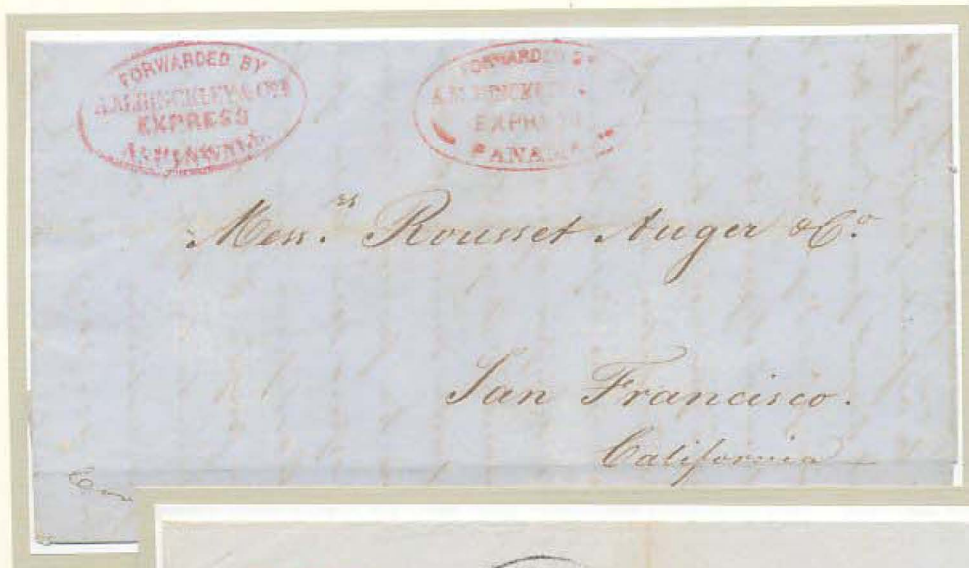 FORWARDED BY
A.M. HINCKLEY & CO'S
EXPRESS
ASPINWALL.
FORWARDED B
A.M. HINCKLEY
EXPRESS
PANAMA
Mess.rs Rousset Auger & Co.
San Francisco.
California